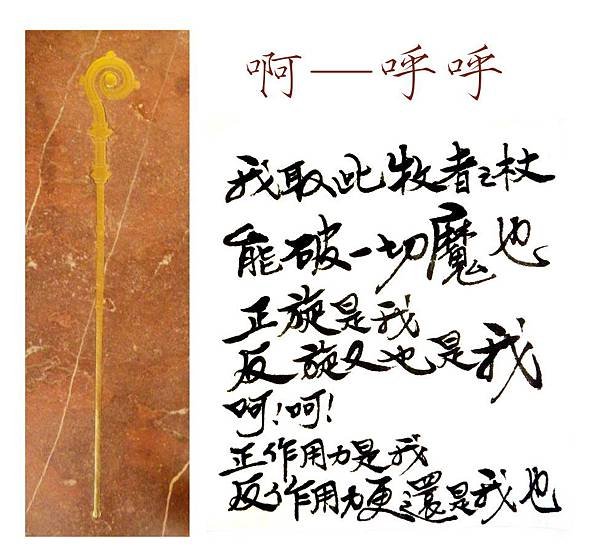 啊—呼呼
我取此牧者之杖
能破一切魔也
正旋是我
反旋又也是我
呵!呵!
正作用力是我
反作用力更之還是我也